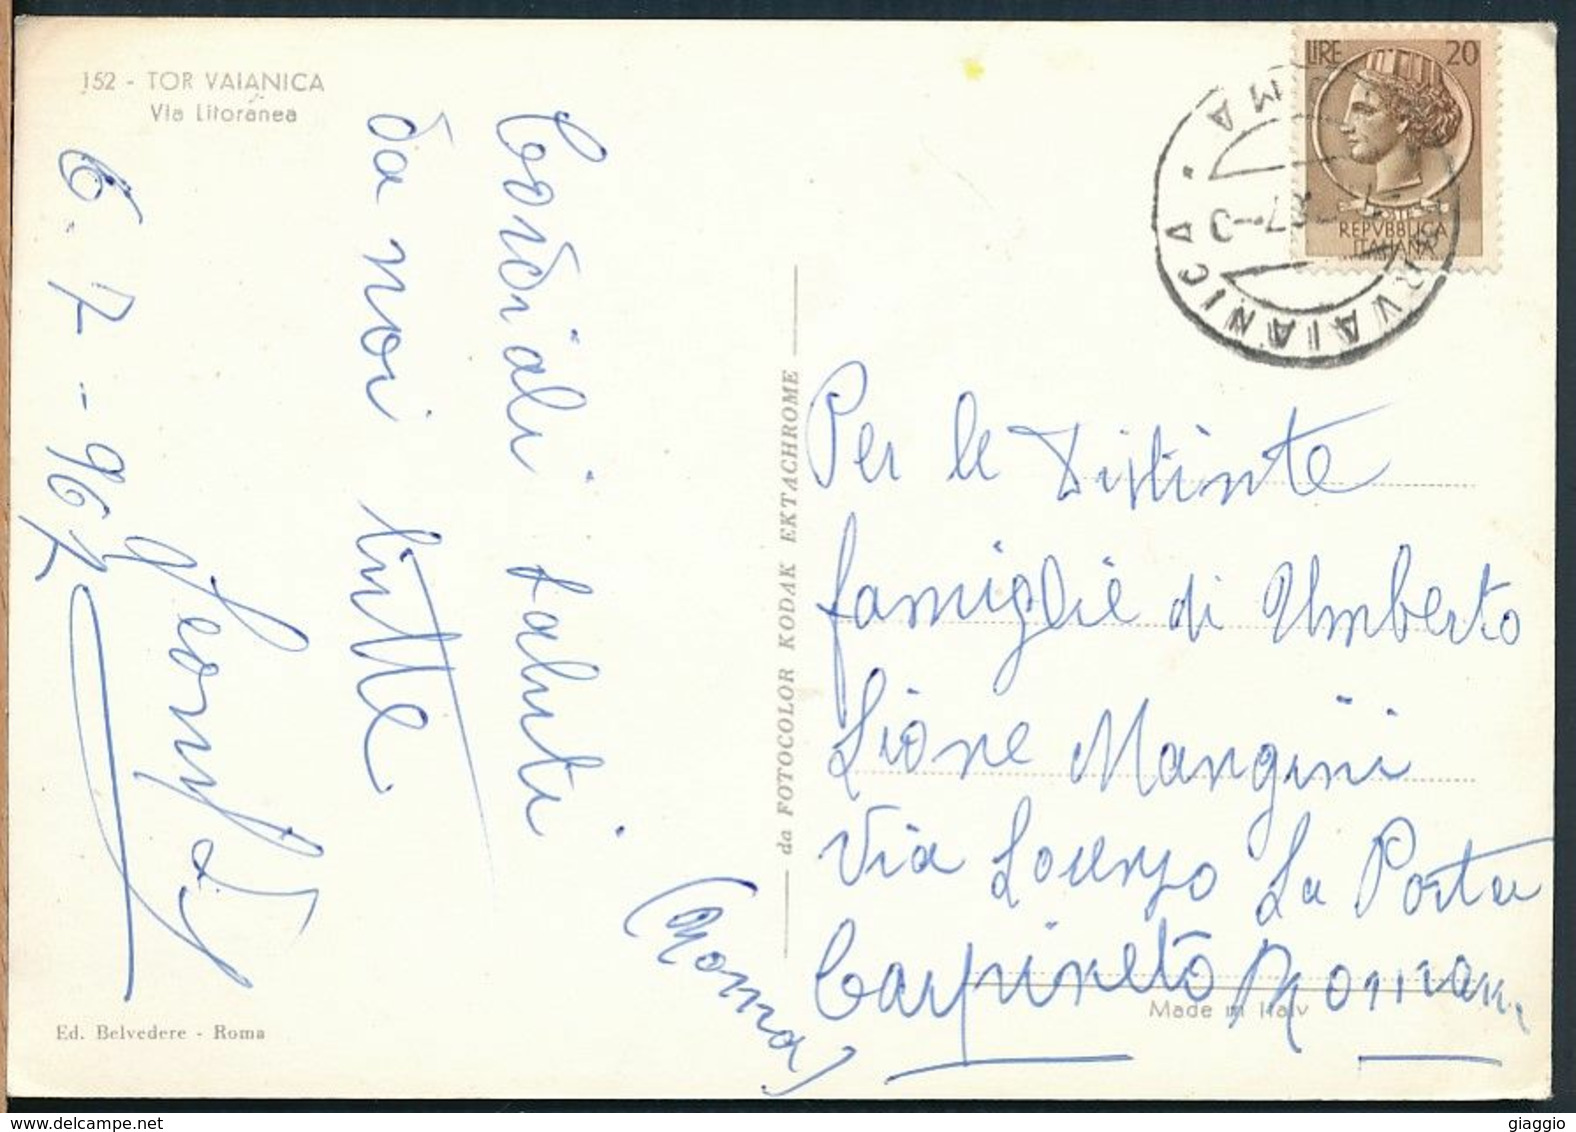 152 - TOR VAIANICA
Via Litoranea
6-7-967
Cordiali saluti
da noi tutte
Ed. Belvedere - Roma
da FOTOCOLOR KODAK EKTACHROME
LIRE 20
POSTE
REPVBBLICA
ITALIANA
TORVAIANICA · ROMA
Per le Distinte
famiglie di Umberto
Lione Mangini
Via Lorenzo La Porta
Carpineto Romano
(Roma)
Made in Italy
giaggio